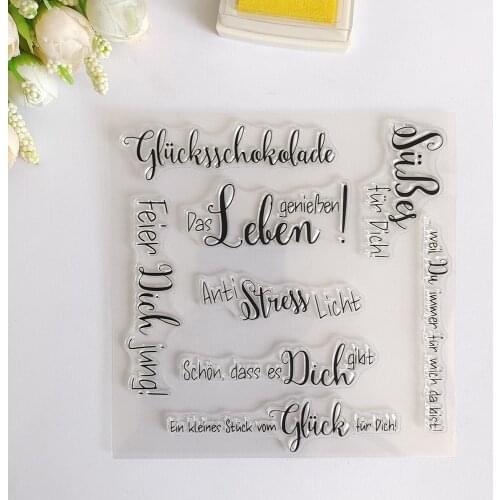 Glücksschokolade
Süßes
für Dich!
Das Leben genießen!
Feier Dich jung!
weil Du immer für mich da bist!
Anti Stress Licht
Schön, dass es Dich gibt
Ein kleines Stück vom Glück für Dich!